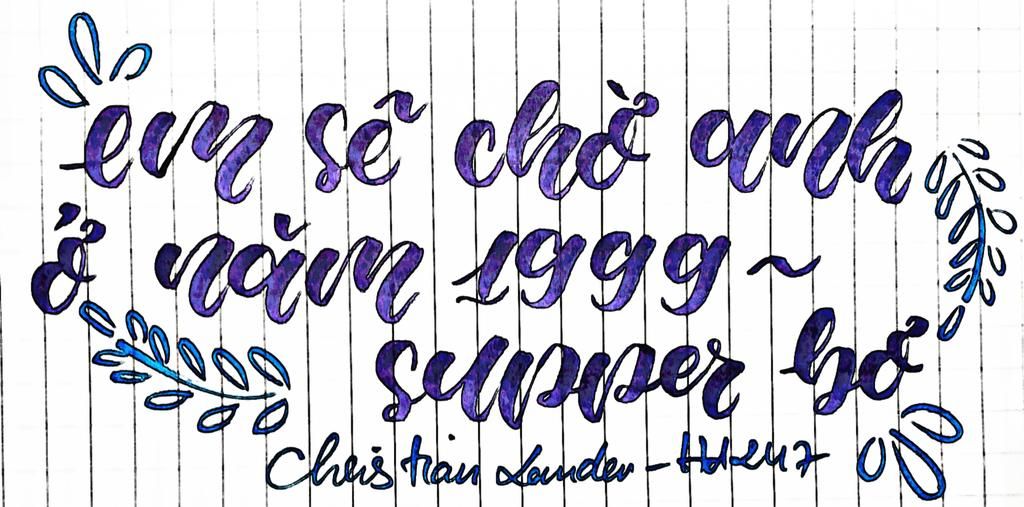 em sẽ chờ anh
ở năm 1999 ~
supper bơ
Christian Lander - HH247